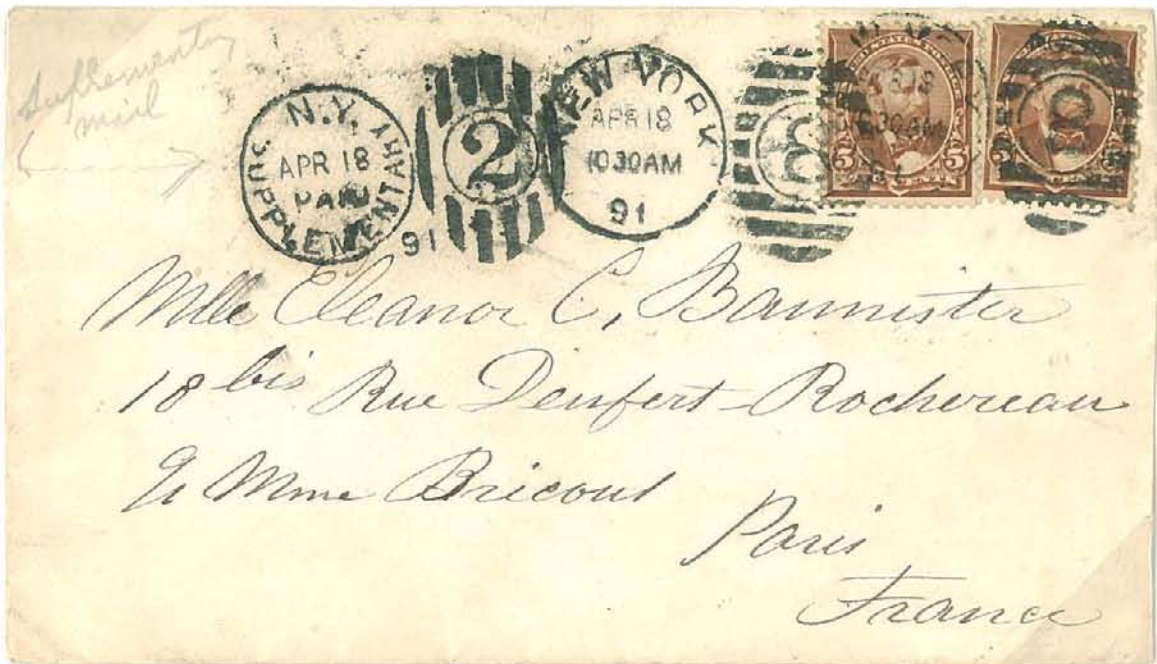 Suplementry
mail
N.Y.
SUPPLEMENTARY
APR 18
PAID
91
2
NEW YORK
APR 18
10 30AM
91
3
UNITED STATES
5 5
CENTS
5
Mlle Eleanor C. Bannister
18 bis Rue Denfert-Rochereau
℅ Mme Bricout
Paris
France